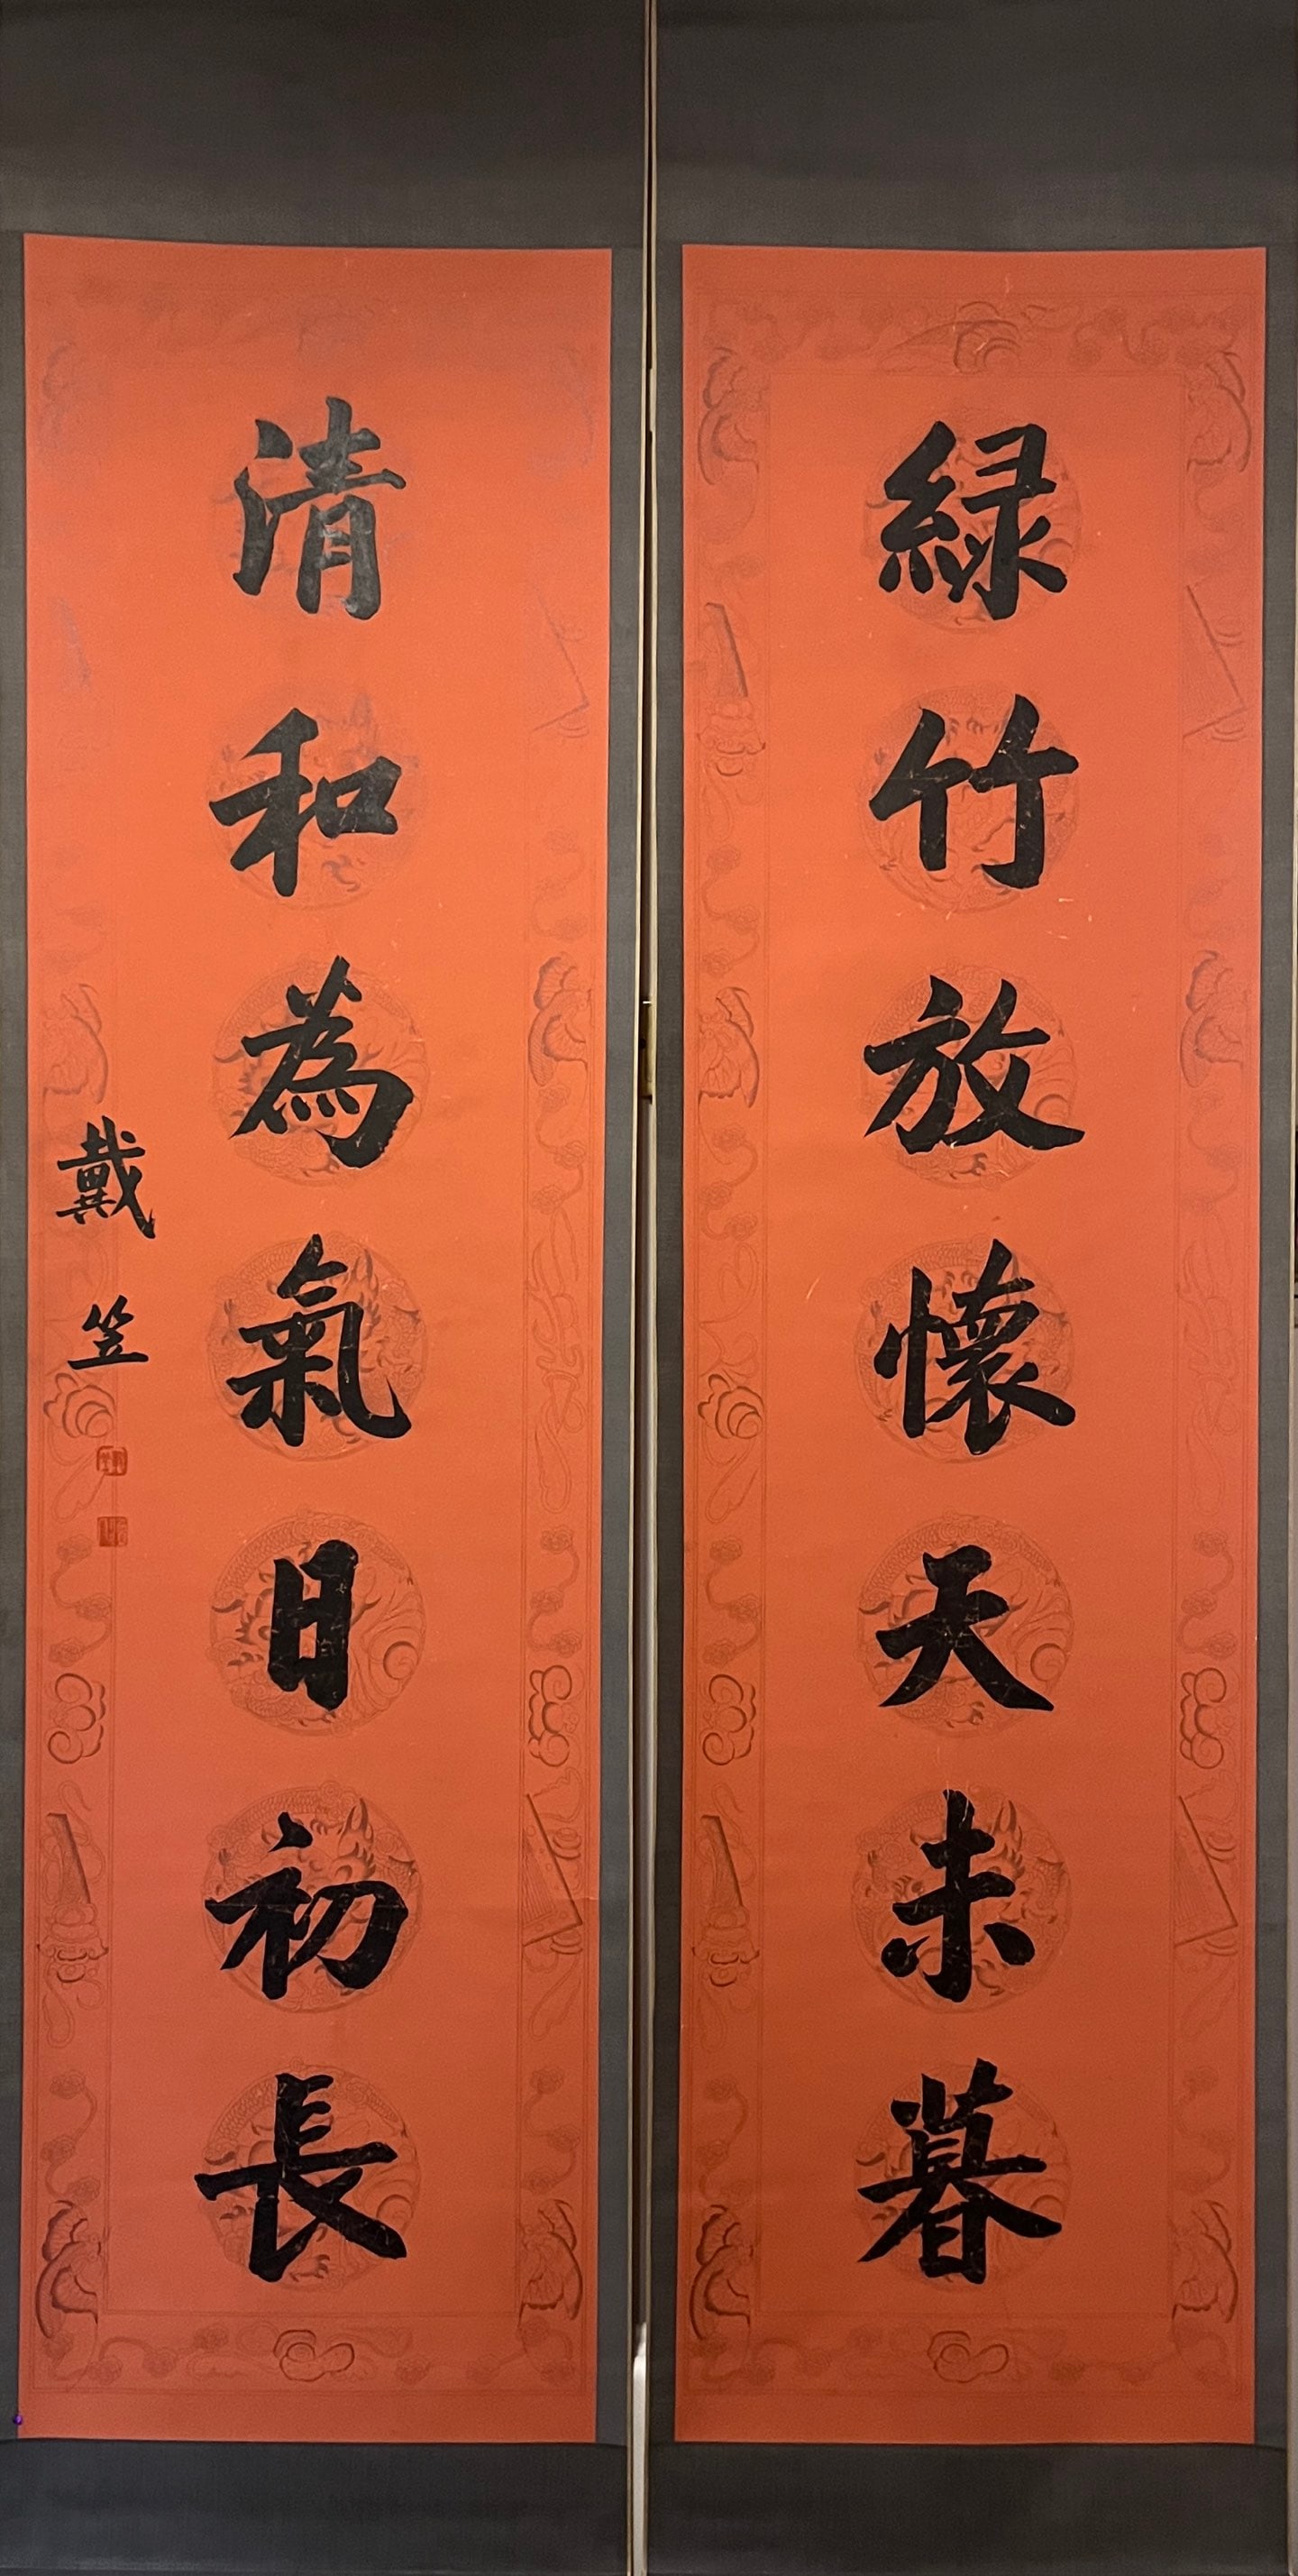 緑竹放懷天未暮
清和為氣日初長
戴笠